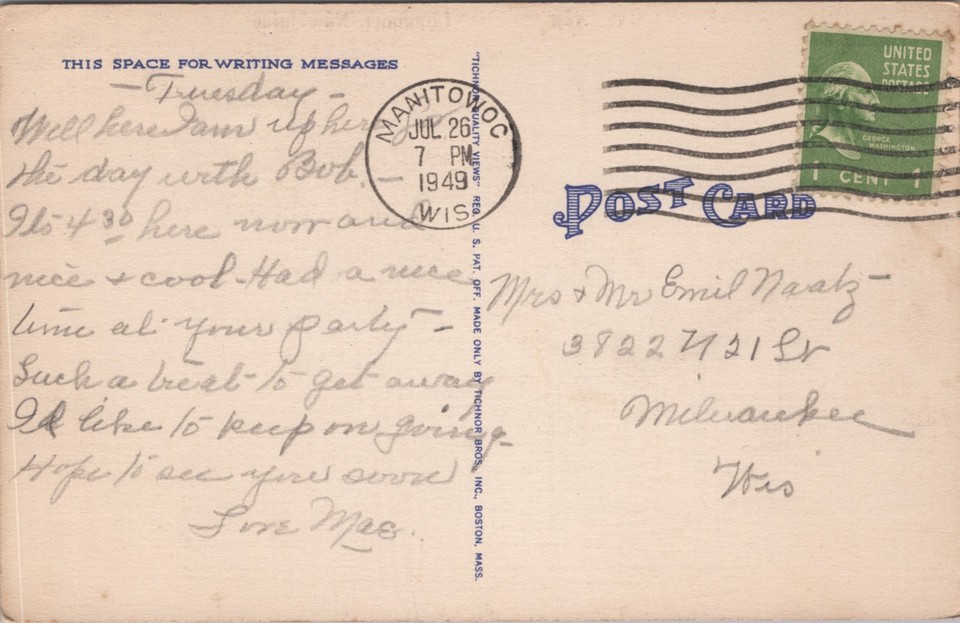 THIS SPACE FOR WRITING MESSAGES
- Tuesday -
Well here I am up here for
the day with Bob. -
Its 4 30 here now and
nice + cool. Had a nice
time at your party -
Such a treat to get away
I'd like to keep on going -
Hope to see you soon
Love Mae.
"TICHNOR QUALITY VIEWS" REG. U. S. PAT. OFF. MADE ONLY BY TICHNOR BROS., INC., BOSTON, MASS.
MANITOWOC
JUL 26
7 PM
1949
WIS.
UNITED
STATES
POSTAGE
GEORGE
WASHINGTON
1 CENT 1
POST CARD
Mrs + Mr Emil Naatz -
3822 N 21 St
Milwaukee
Wis